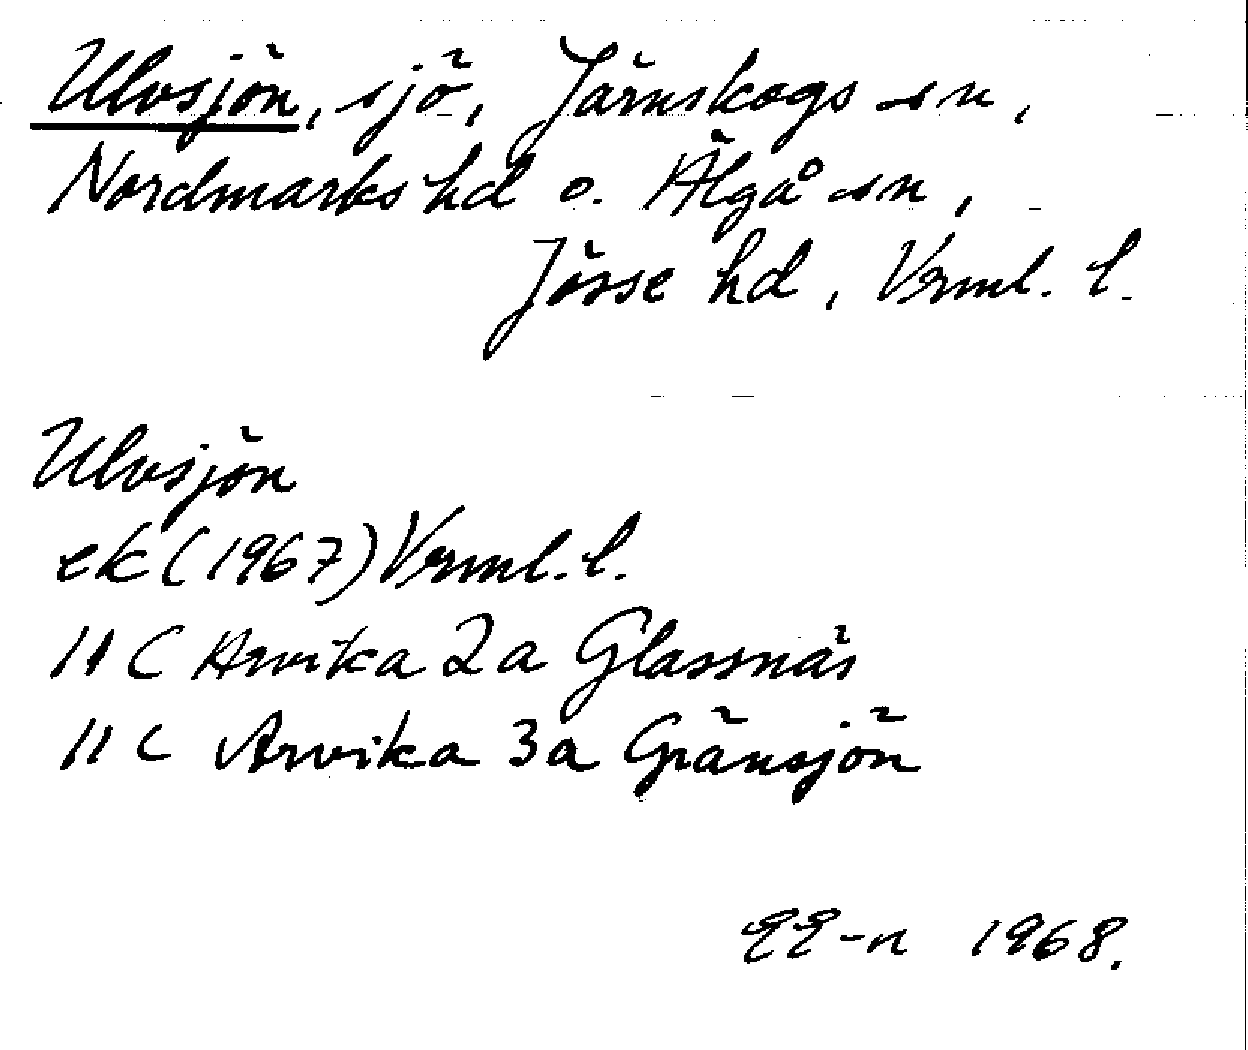 Ulvsjön, sjö, Järnskogs sn,
Nordmarks hd o. Älgå sn,
Jösse hd, Vrml. l.
Ulvsjön
ek (1967) Vrml. l.
11 C Arvika 2a Glassnäs
11 C Arvika 3a Gränsjön
EE-n 1968.